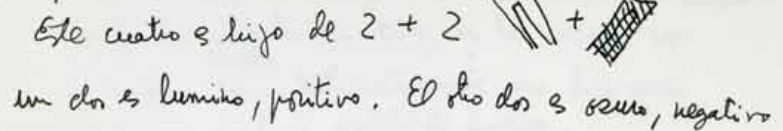 Este cuatro es hijo de 2 + 2 +
un dos es lumino, positivo. El otro dos es oscuro, negativo